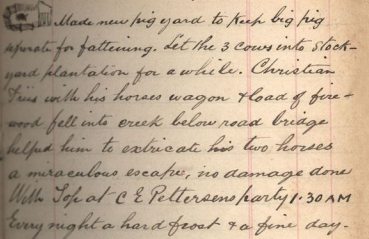 Made new pig yard to keep big pig
seperate for fattening. Let the 3 cows into stock-
yard plantation for a while. Christian
Friis with his horses wagon & load of fire-
wood fell into creek below road bridge
helped him to extricate his two horses
a miraculous escape, no damage done
With Top at C E Pettersens party 1.30 AM
Every night a hard frost & a fine day.